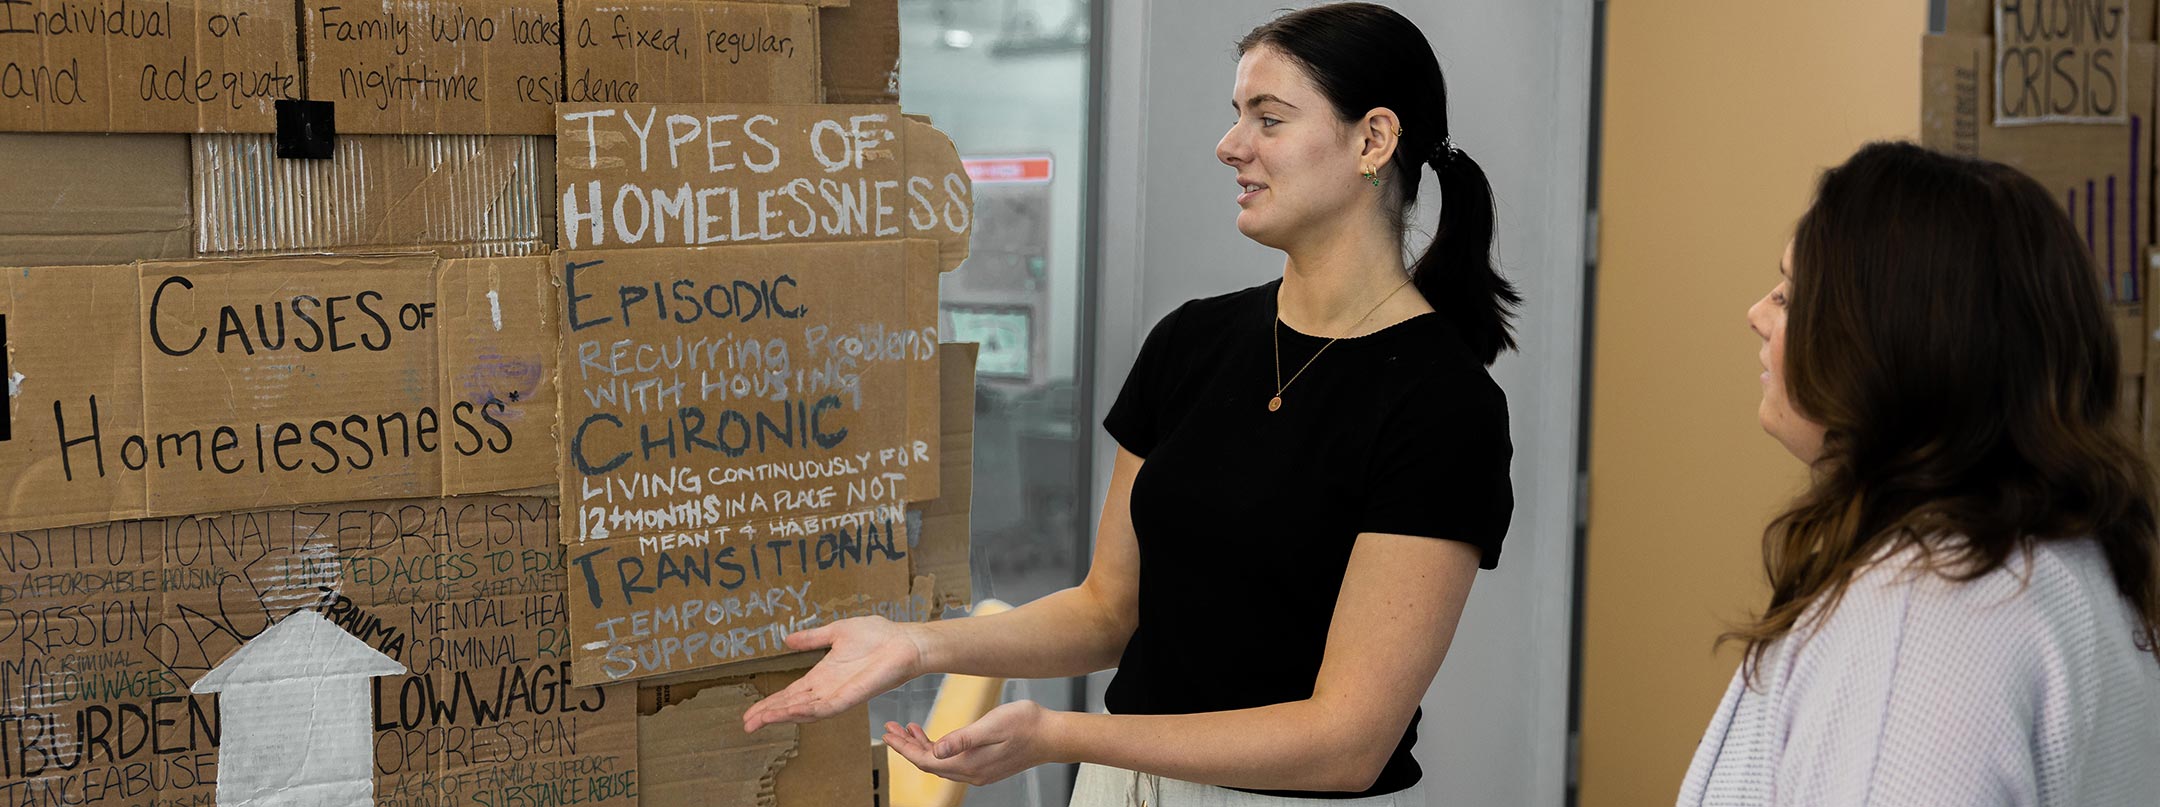 Individual or Family who lacks a fixed, regular,
and adequate nighttime residence
TYPES OF
HOMELESSNESS
EPISODIC
RECURRING PROBLEMS
WITH HOUSING
CHRONIC
LIVING CONTINUOUSLY FOR
12+ MONTHS IN A PLACE NOT
MEANT 4 HABITATION
TRANSITIONAL
TEMPORARY,
SUPPORTIVE
CAUSES OF
Homelessness*
INSTITUTIONALIZED RACISM
AFFORDABLE HOUSING
LIMITED ACCESS TO
LACK OF SAFETY NET
TRAUMA
MENTAL
CRIMINAL
CRIMINAL
LOW WAGES
LOW WAGES
BURDEN
OPPRESSION
ABUSE
LACK OF FAMILY SUPPORT
SUBSTANCE ABUSE
HOUSING
CRISIS